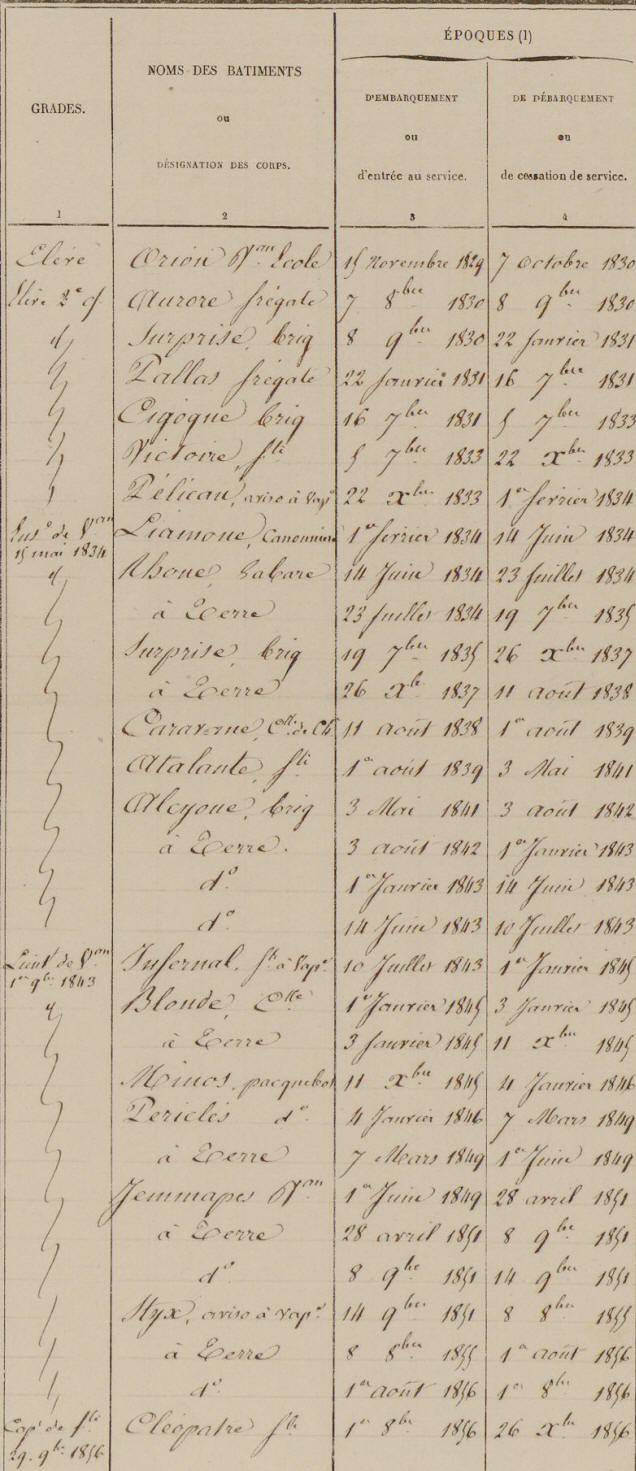 GRADES.
NOMS DES BATIMENTS
ou
DÉSIGNATION DES CORPS.
ÉPOQUES (1)
D'EMBARQUEMENT
ou
d'entrée au service.
DE DÉBARQUEMENT
ou
de cessation de service.
1 2 3 4
Elève Orion Vau Ecole 15 Novembre 1829 7 Octobre 1830
Elève 2e cl Aurore frégate 7 8bre 1830 8 9bre 1830
d Surprise, brig 8 9bre 1830 22 Janvier 1831
Pallas frégate 22 Janvier 1831 16 7bre 1831
Cigogne brig 16 7bre 1831 5 7bre 1833
Victoire, fte 5 7bre 1833 22 Xbre 1833
Pélican, aviso à vapr 22 Xbre 1833 1er février 1834
Ense de Vau
15 mai 1834
Liamone, Canonnière 1er février 1834 14 Juin 1834
d Rhone, Gabare 14 Juin 1834 23 Juillet 1834
à Terre 23 Juillet 1834 19 7bre 1835
Surprise, brig 19 7bre 1835 26 Xbre 1837
à Terre 26 Xbre 1837 11 août 1838
Caravane, Clle de Ch 11 août 1838 1er août 1839
Atalante, fte 1er août 1839 3 Mai 1841
Alcyone, brig 3 Mai 1841 3 août 1842
à Terre. 3 août 1842 1er Janvier 1843
do 1er Janvier 1843 14 Juin 1843
do 14 Juin 1843 10 Juillet 1843
Lieut de Vau
1er 9bre 1843
Infernal, fte à vapr 10 Juillet 1843 1er Janvier 1845
d Blonde, Clle 1er Janvier 1845 3 Janvier 1845
à Terre 3 Janvier 1845 11 Xbre 1845
Minos, pacquebot 11 Xbre 1845 4 Janvier 1846
Periclès do 4 Janvier 1846 7 Mars 1849
à Terre 7 Mars 1849 1er Juin 1849
Jemmapes Vau 1er Juin 1849 28 avril 1851
à Terre 28 avril 1851 8 9bre 1851
do 8 9bre 1851 14 9bre 1851
Styx, aviso à vapr 14 9bre 1851 8 8bre 1855
à Terre 8 8bre 1855 1er août 1856
do 1er août 1856 1er 8bre 1856
Cape de fte
29. 9bre 1856
Cléopatre fte 1er 8bre 1856 26 Xbre 1856